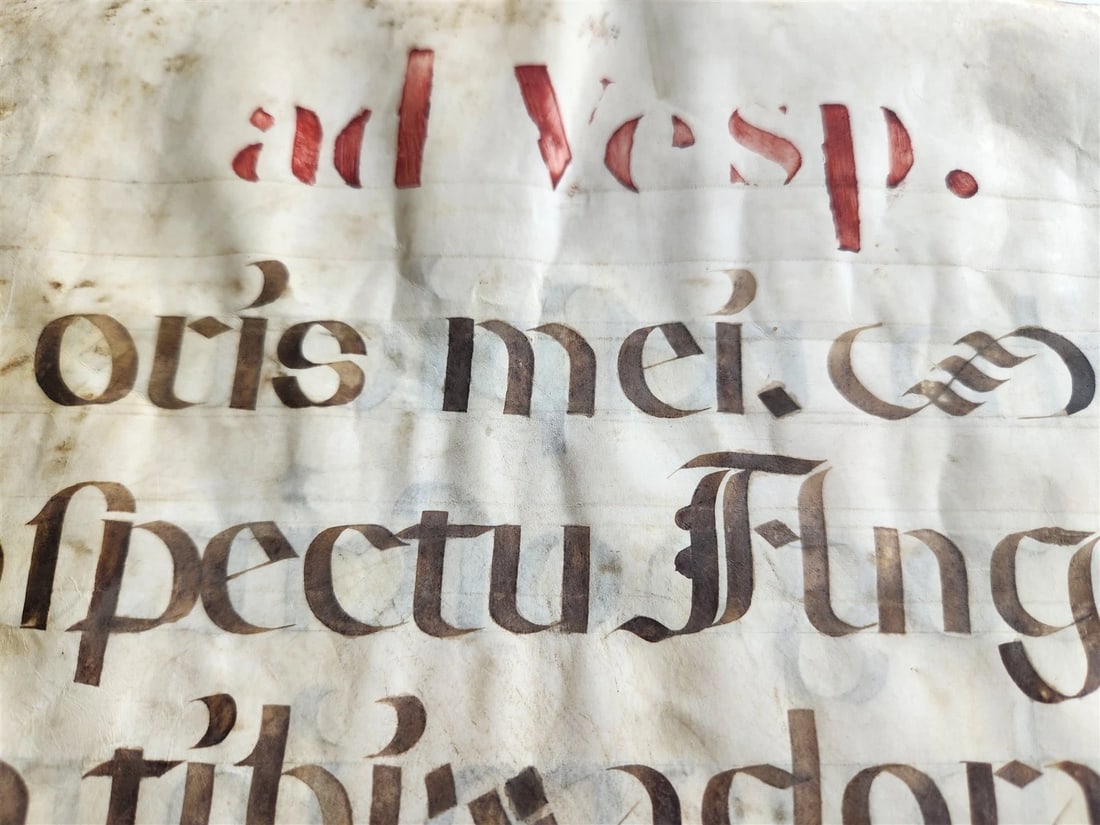 ad Vesp.
oris mei.
ſpectu Ang
tibi: ador